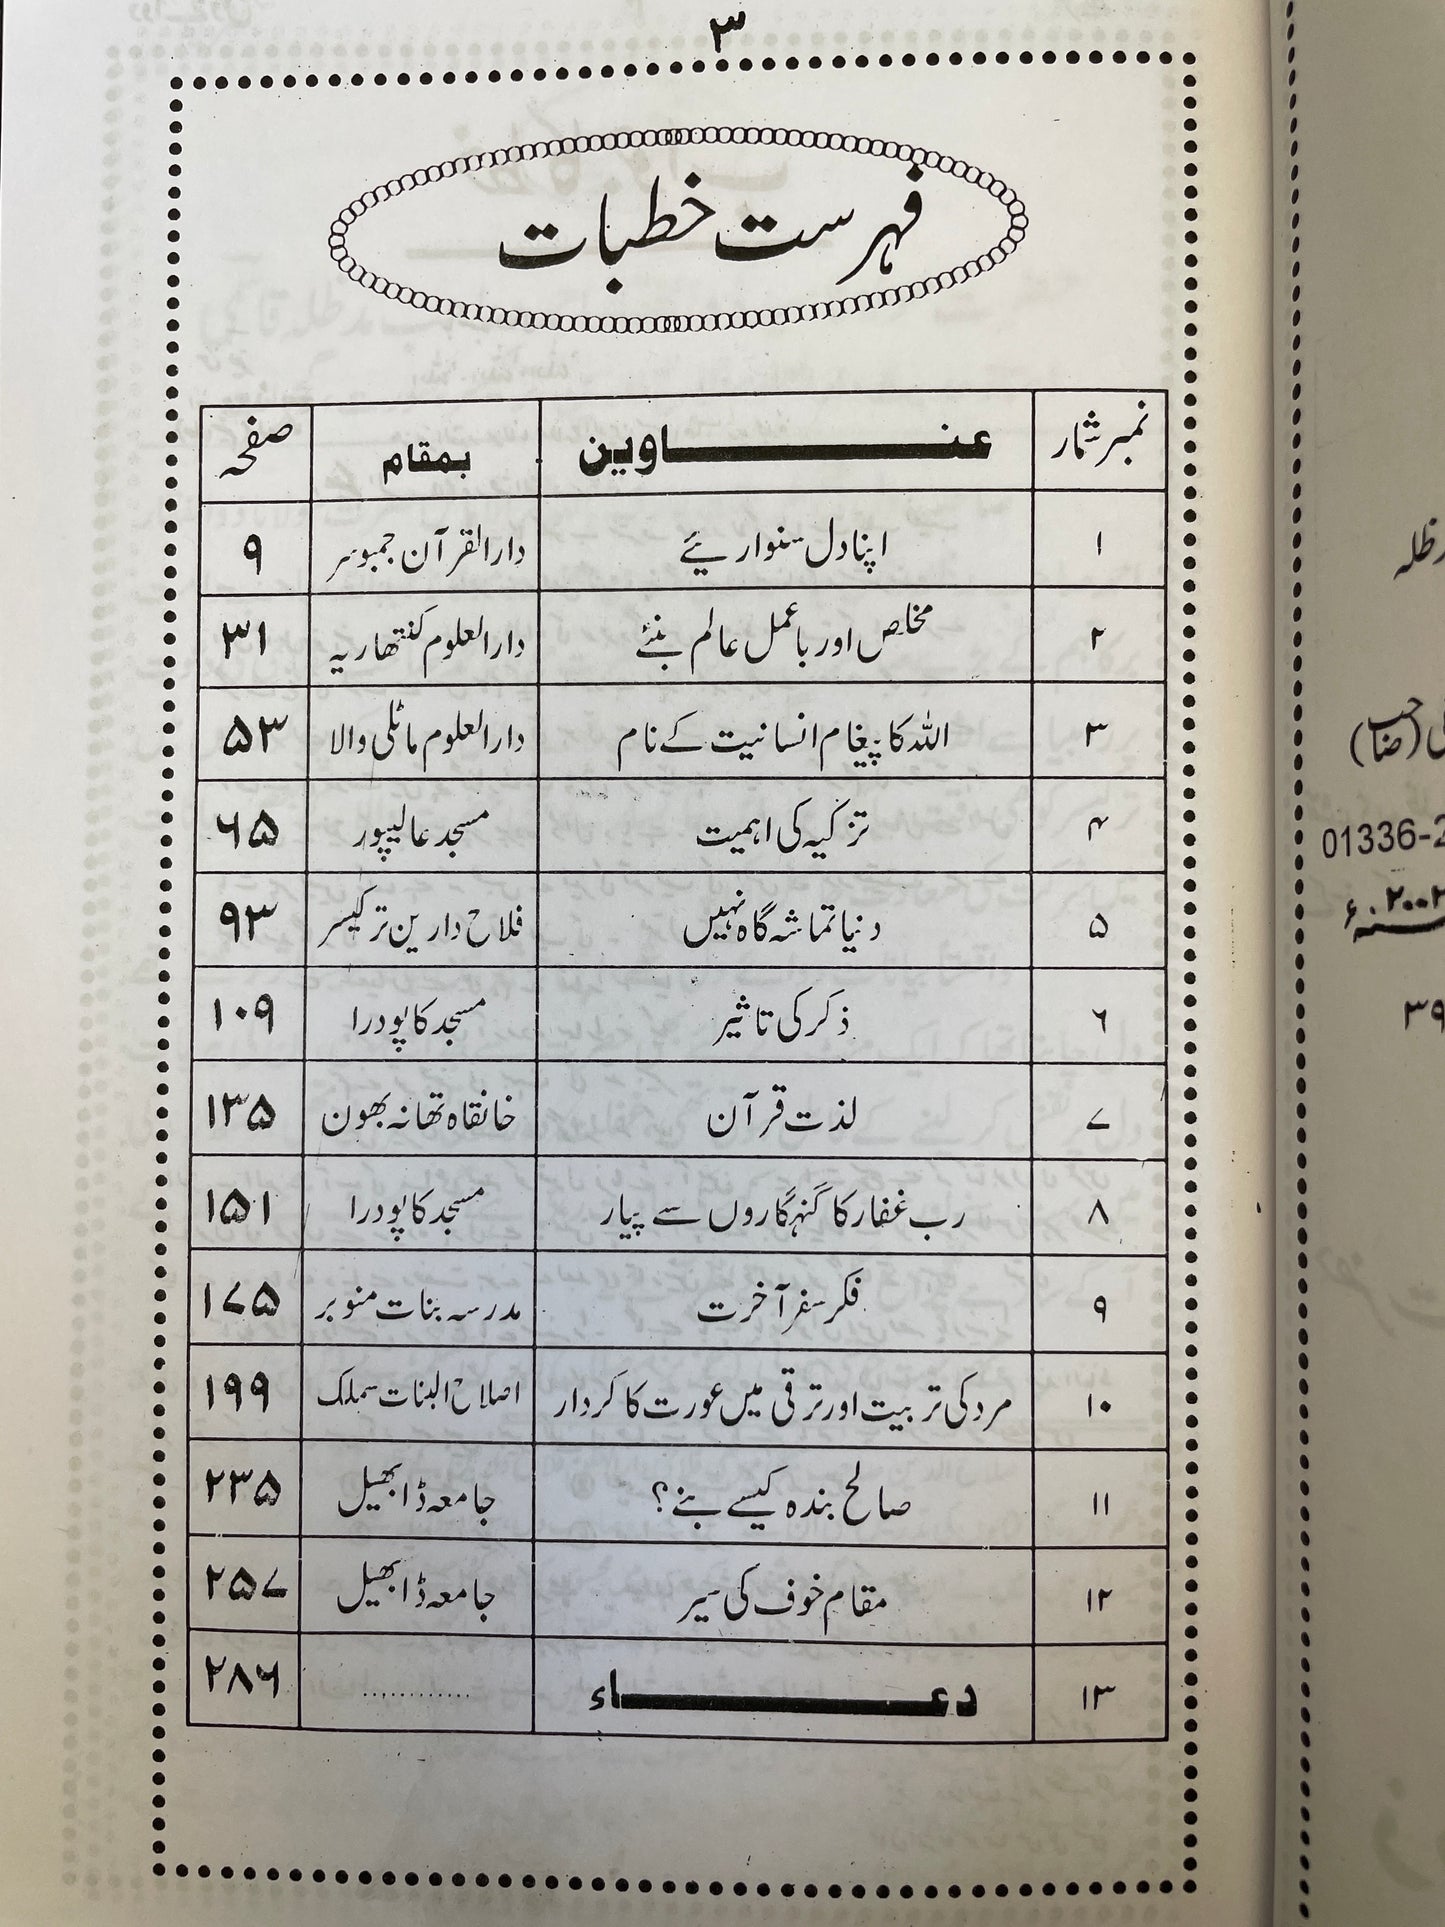 ۳
فہرست خطبات
نمبر شمار عناوین بمقام صفحہ
۱ اپنا دل سنواریئے دارالقرآن جمبوسر ۹
۲ مخلص اور باعمل عالم بنئے دارالعلوم کنتھاریہ ۳۱
۳ اللہ کا پیغام انسانیت کے نام دارالعلوم ماٹلی والا ۵۳
۴ تزکیہ کی اہمیت مسجد عالیپور ۶۵
۵ دنیا تماشہ گاہ نہیں فلاح دارین ترکیسر ۹۳
۶ ذکر کی تاثیر مسجد کاپودرا ۱۰۹
۷ لذت قرآن خانقاہ تھانہ بھون ۱۳۵
۸ رب غفار کا گنہگاروں سے پیار مسجد کاپودرا ۱۵۱
۹ فکر سفر آخرت مدرسہ بنات منوبر ۱۷۵
۱۰ مرد کی تربیت اور ترقی میں عورت کا کردار اصلاح البنات سملک ۱۹۹
۱۱ صالح بندہ کیسے بنے؟ جامعہ ڈابھیل ۲۳۵
۱۲ مقام خوف کی سیر جامعہ ڈابھیل ۲۵۷
۱۳ دعاء ............ ۲۸۶
ظلہ
(صاحب)
01336-2
۲۰۰۲ء
۳۹